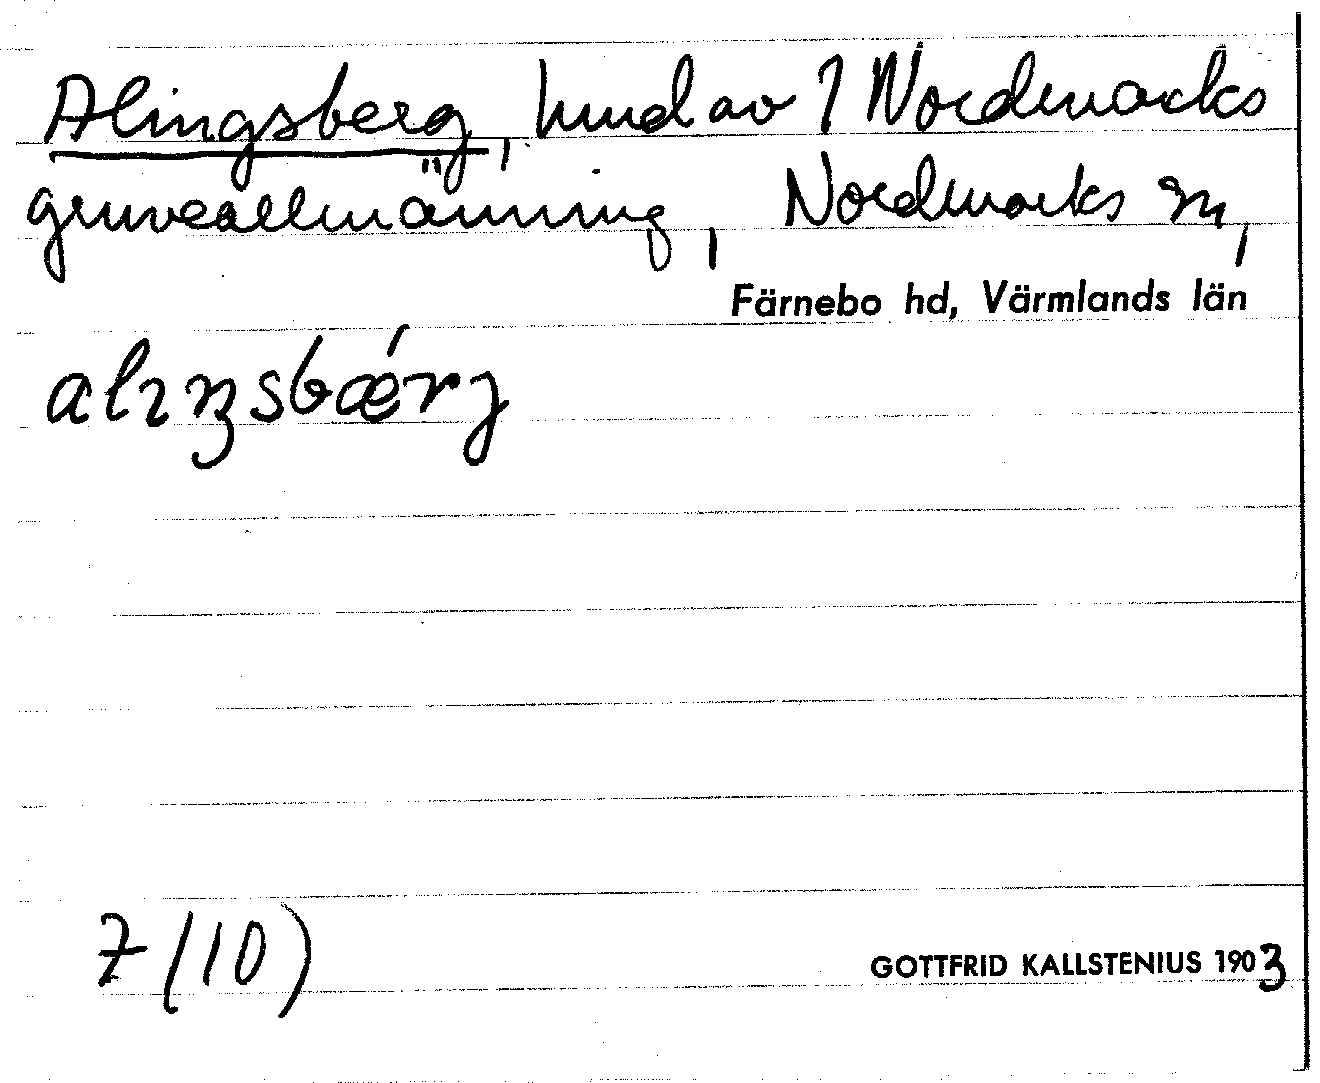 Alingsberg, hmd av 1 Nordmarks
gruveallmänning, Nordmarks sn,
Färnebo hd, Värmlands län
alıŋsbǽrj
7 (10)
GOTTFRID KALLSTENIUS 1903